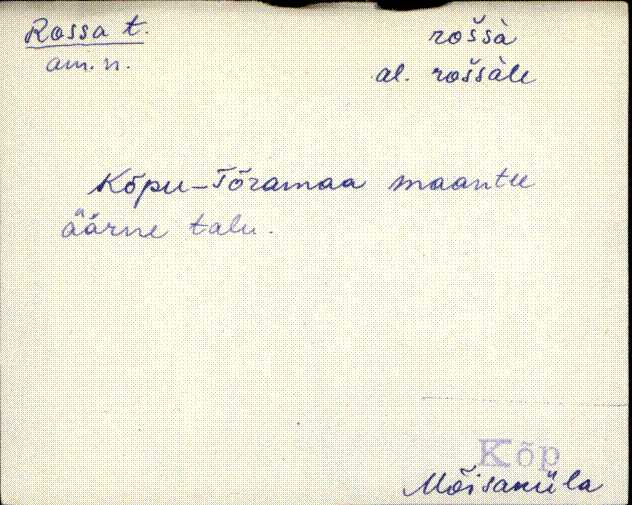 Rossa t.
am. n.
roššà
al. roššàle
Kõpu-Tõramaa maantee
äärne talu.
Kõp
Mõisaküla